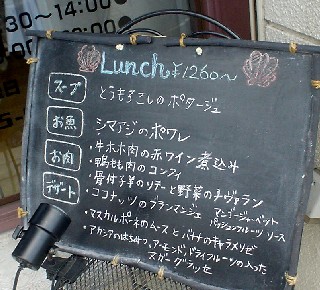 :30～14:00
:00～
Lunch ¥1260～
スープ
とうもろこしのポタージュ
お魚
シマアジのポワレ
お肉
・牛ホホ肉の赤ワイン煮込み
・鴨もも肉のコンフィ
・骨付子羊のソテーと野菜のナヴァラン
デザート
・ココナッツのブランマンジェ マンゴーシャーベット
パッションフルーツソース
・マスカルポーネのムースとバナナのキャラメリゼ
・アカシアのはちみつ、アーモンド、ドライフルーツの入った
ヌガーグラッセ